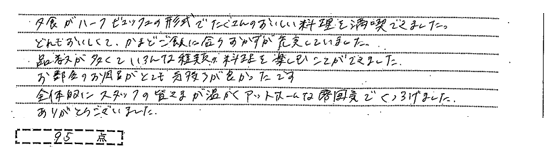 夕食がハーフビュッフェの形式でたくさんのおいしい料理を満喫できました。
どれもおいしくて、かまどご飯に合うおかずが充実していました。
品数が多くていろんな種類の料理を楽しむことができました。
お部屋のお風呂がとても気持ちが良かったです
全体的にスタッフの皆さまが温かくアットホームな雰囲気でくつろげました。
ありがとうございました。
95 点